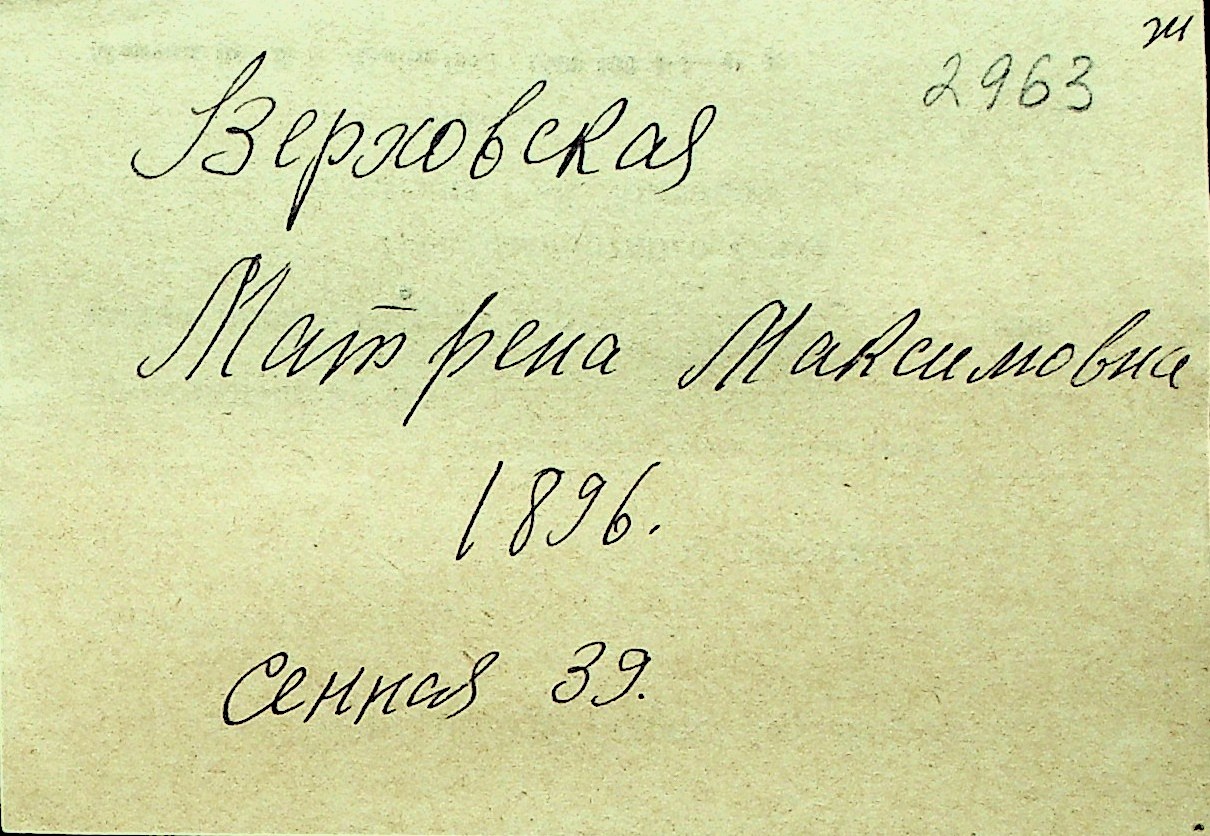 2963
Верховская
Матрена Максимовна
1896.
Сенная 39.